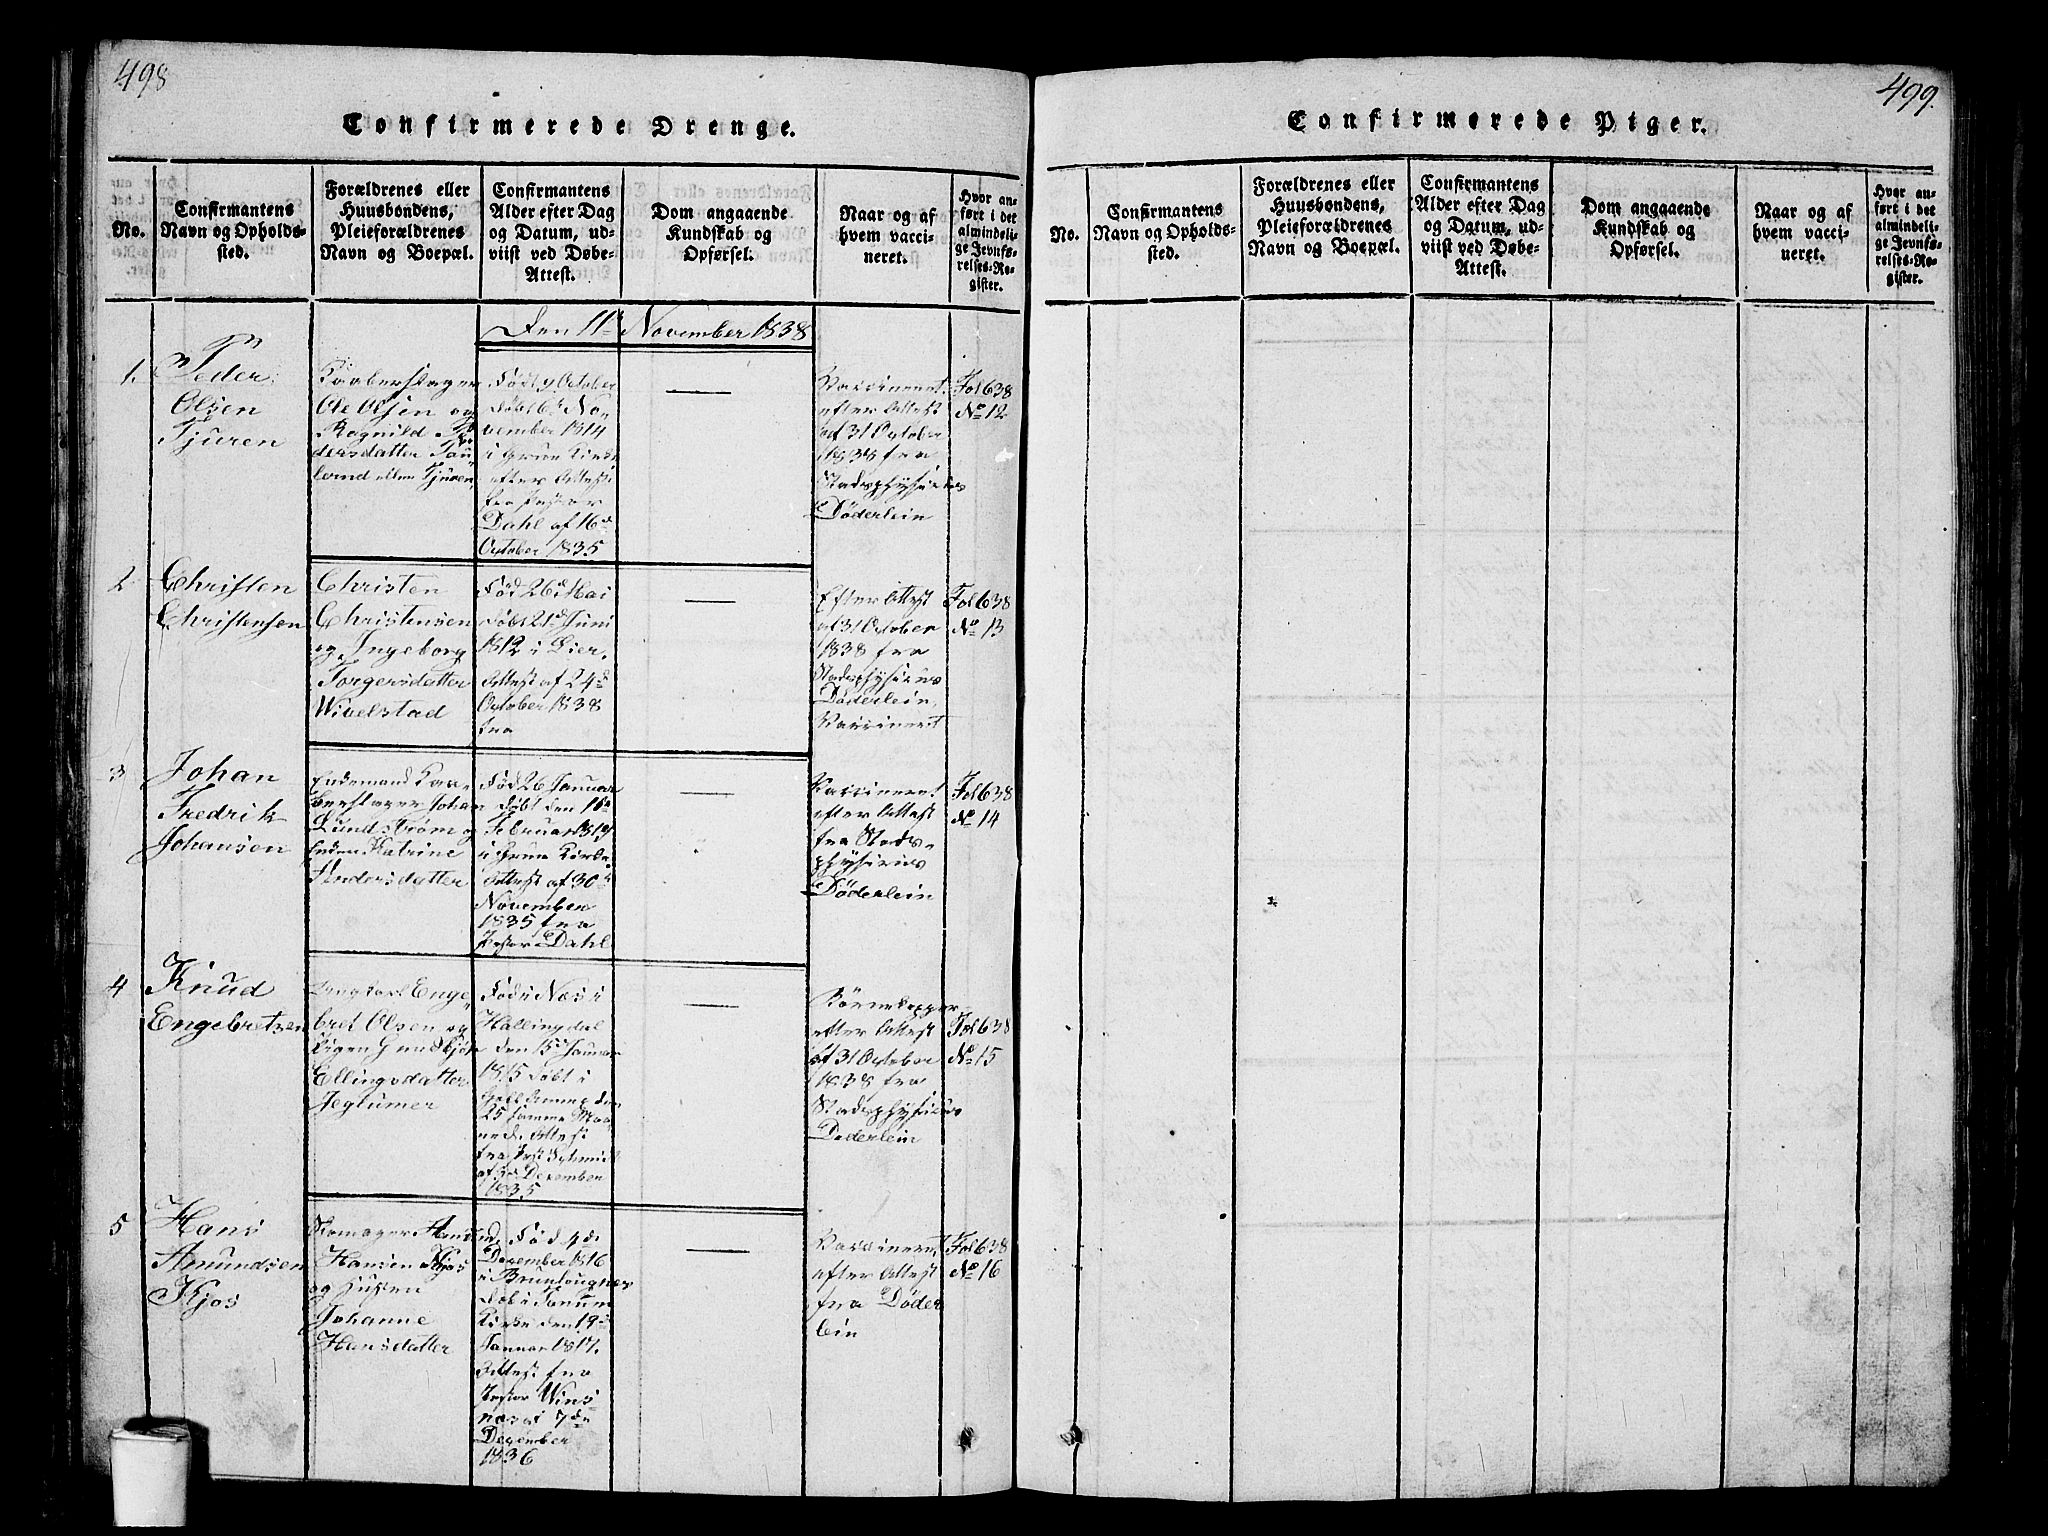 498
Confirmerede Drenge.
No.
Confirmantens
Navn og Opholds-
sted.
Forældrenes eller
Huusbondens,
Pleieforældrenes
Navn og Boepæl.
Confirmantens
Alder efter Dag
og Datum, ud-
viist ved Døbe-
Attest.
Dom angaaende
Kundskab og
Opførsel.
Naar og af
hvem vacci-
neret.
Hvor an-
ført i det
almindeli-
ge Jevnfø-
relses-Re-
gister.
Den 11te November 1838
1.
Peder
Olsen
Tjuren
Kaaberslager
Ole Olsen og
Ragnild
dersdatter
Tjuren
Fød 9 October
døbt 6te No-
vember 1814
i Grue Kirke
efter Attest
fra Pastor
Dahl af 16de
October 1835
—
Vaccineret
efter Attest
af 31 October
1838 fra
Stadsphysicus
Døderlein
Fol 638
No 12
2
Christen
Christensen
Christen
Christensen
og Ingeborg
Torgersdatter
Wivelstad
Fød 26de Mai
døbt 21de Juni
1812 i Lier.
Attest af 24de
October 1838
fra
—
Efter Attest
af 31 October
1838 fra
Stadsphysicus
Døderlein
Vaccineret
Fol 638
No 13
3
Johan
Fredrik
Johansen
Johan
Lundstrøm og
Katrine
Andersdatter
Fød 26 Januar
døbt den 16de
Februar 1819
i Grue Kirke
Attest af 30te
November
1835 fra
Pastor Dahl
—
Vaccineret
efter Attest
fra Stads-
physicus
Døderlein
Fol 638
No 14
4
Knud
Engebretsen
Enge-
bret Olsen og
Pigen
Ellingsdatter
Jeglumer
Fød i Næs i
Hallingdal
den 15de Januar
1815 døbt i
den
25 samme Maa-
ned. Attest
fra
af Desember
1835
—
Børnekopper
efter Attest
af 31 October
1838 fra
Stadsphysicus
Døderlein
Fol 638
No 15
5
Hans
Amundsen
Kjos
Skomager
Hansen Kjos
og Hustru
Johanne
Hansdatter
Fød 4de
Desember 1816
i
døbt i Tanum
Kirke den 19de
Januar 1817.
Attest fra
Pastor Wins
næs af 7de
Desember
1836
—
Vaccineret
efter Attest
fra Døder
lein
Fol 638
No 16
499.
Confirmerede Piger.
No.
Confirmantens
Navn og Opholds-
sted.
Forældrenes eller
Huusbondens,
Pleieforældrenes
Navn og Boepæl.
Confirmantens
Alder efter Dag
og Datum, ud-
viist ved Døbe-
Attest.
Dom angaaende
Kundskab og
Opførsel.
Naar og af
hvem vacci-
neret.
Hvor an-
ført i det
almindeli-
ge Jevnfø-
relses-Re-
gister.